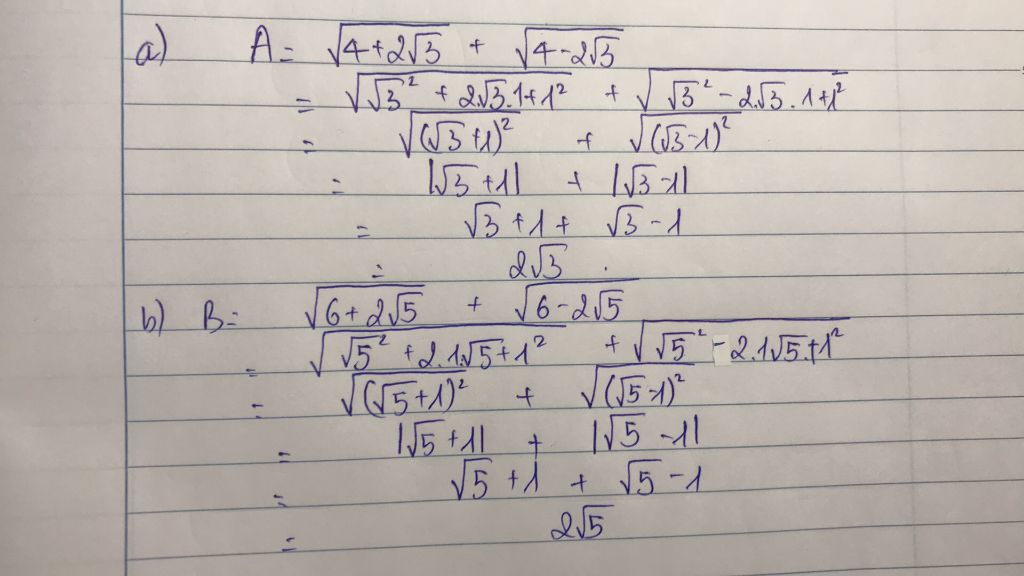 a) A = √(4+2√3) + √(4-2√3)
= √(√3² + 2√3.1+1²) + √(√3² - 2.√3.1+1²)
= √((√3+1)²) + √((√3-1)²)
= |√3+1| + |√3-1|
= √3+1+ √3-1
= 2√3.
b) B = √(6+2√5) + √(6-2√5)
= √(√5² +2.1.√5+1²) + √(√5² - 2.1√5+1²)
= √((√5+1)²) + √((√5-1)²)
= |√5+1| + |√5-1|
= √5+1 + √5-1
= 2√5